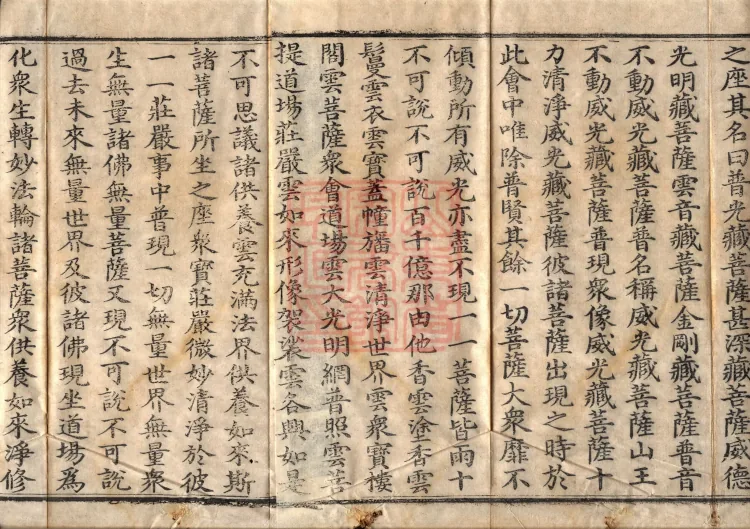 之座其名曰普光藏菩薩甚深藏菩薩威德
光明藏菩薩雲音藏菩薩金剛藏菩薩普音
不動威光藏菩薩普名稱威光藏菩薩山王
不動威光藏菩薩普現衆像威光藏菩薩十
力清淨威光藏菩薩彼諸菩薩出現之時於
此會中唯除普賢其餘一切菩薩大衆靡不
傾動所有威光亦盡不現一一菩薩皆雨十
不可說不可說百千億那由他香雲塗香雲
鬘雲衣雲寶蓋幢旛雲清淨世界雲衆寶樓
閣雲菩薩衆會道場雲大光明網普照雲菩
提道場莊嚴雲如來形像袈裟雲各興如是
不可思議諸供養雲充滿法界供養如來斯
諸菩薩所坐之座衆寶莊嚴微妙清淨於彼
一一莊嚴事中普現一切無量世界無量衆
生無量諸佛無量菩薩又現不可說不可說
過去未來無量世界及彼諸佛現坐道場爲
化衆生轉妙法輪諸菩薩衆供養如來淨修